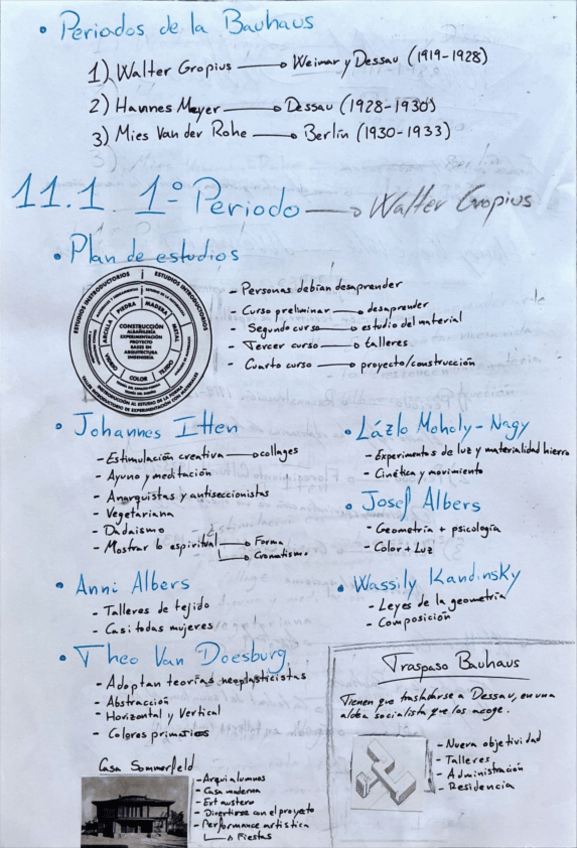 • Periodos de la Bauhaus
1) Walter Gropius → Weimar y Dessau (1919-1928)
2) Hannes Meyer → Dessau (1928-1930)
3) Mies Van der Rohe → Berlín (1930-1933)
11.1 1º Periodo → Walter Gropius
• Plan de estudios
ESTUDIOS INSTRODUCTORIOS
ESTUDIOS INTRODUCTORIOS
PIEDRA
MADERA
METAL
ARCILLA
VIDRIO
COLOR
TEXTIL
CONSTRUCCIÓN
ALBAÑILERÍA
EXPERIMENTACIÓN
PROYECTO
BASES EN
ARQUITECTURA
INGENIERÍA
INTRODUCCIÓN AL ESTUDIO DE LA FORMA
TALLER INTRODUCTORIO DE EXPERIMENTACIÓN CON MATERIALES
- Personas debían desaprender
- Curso preliminar → desaprender
- Segundo curso → estudio del material
- Tercer curso → talleres
- Cuarto curso → proyecto/construcción
• Johannes Itten
- Estimulación creativa → collages
- Ayuno y meditación
- Anarquistas y antiseccionistas
- Vegetariana
- Dadaismo
- Mostrar lo espiritual → Forma
→ Cromatismo
• Lázlo Moholy-Nagy
- Experimentos de luz y materialidad hierro
- Cinética y movimiento
• Josef Albers
- Geometría + psicología
- Color + Luz
• Anni Albers
- Talleres de tejido
- Casi todas mujeres
• Wassily Kandinsky
- Leyes de la geometría
- Composición
• Theo Van Doesburg
- Adoptan teorías neoplasticistas
- Abstracción
- Horizontal y Vertical
- Colores primarios
Casa Sommerfeld
- Arqui alumnos
- Casa moderna
- Ext austero
- Divertirse con el proyecto
- Performance artistica
→ Fiestas
Traspaso Bauhaus
Tienen que trasladarse a Dessau, en una
aldea socialista que los acoge.
- Nueva objetividad
- Talleres
- Administración
- Residencia